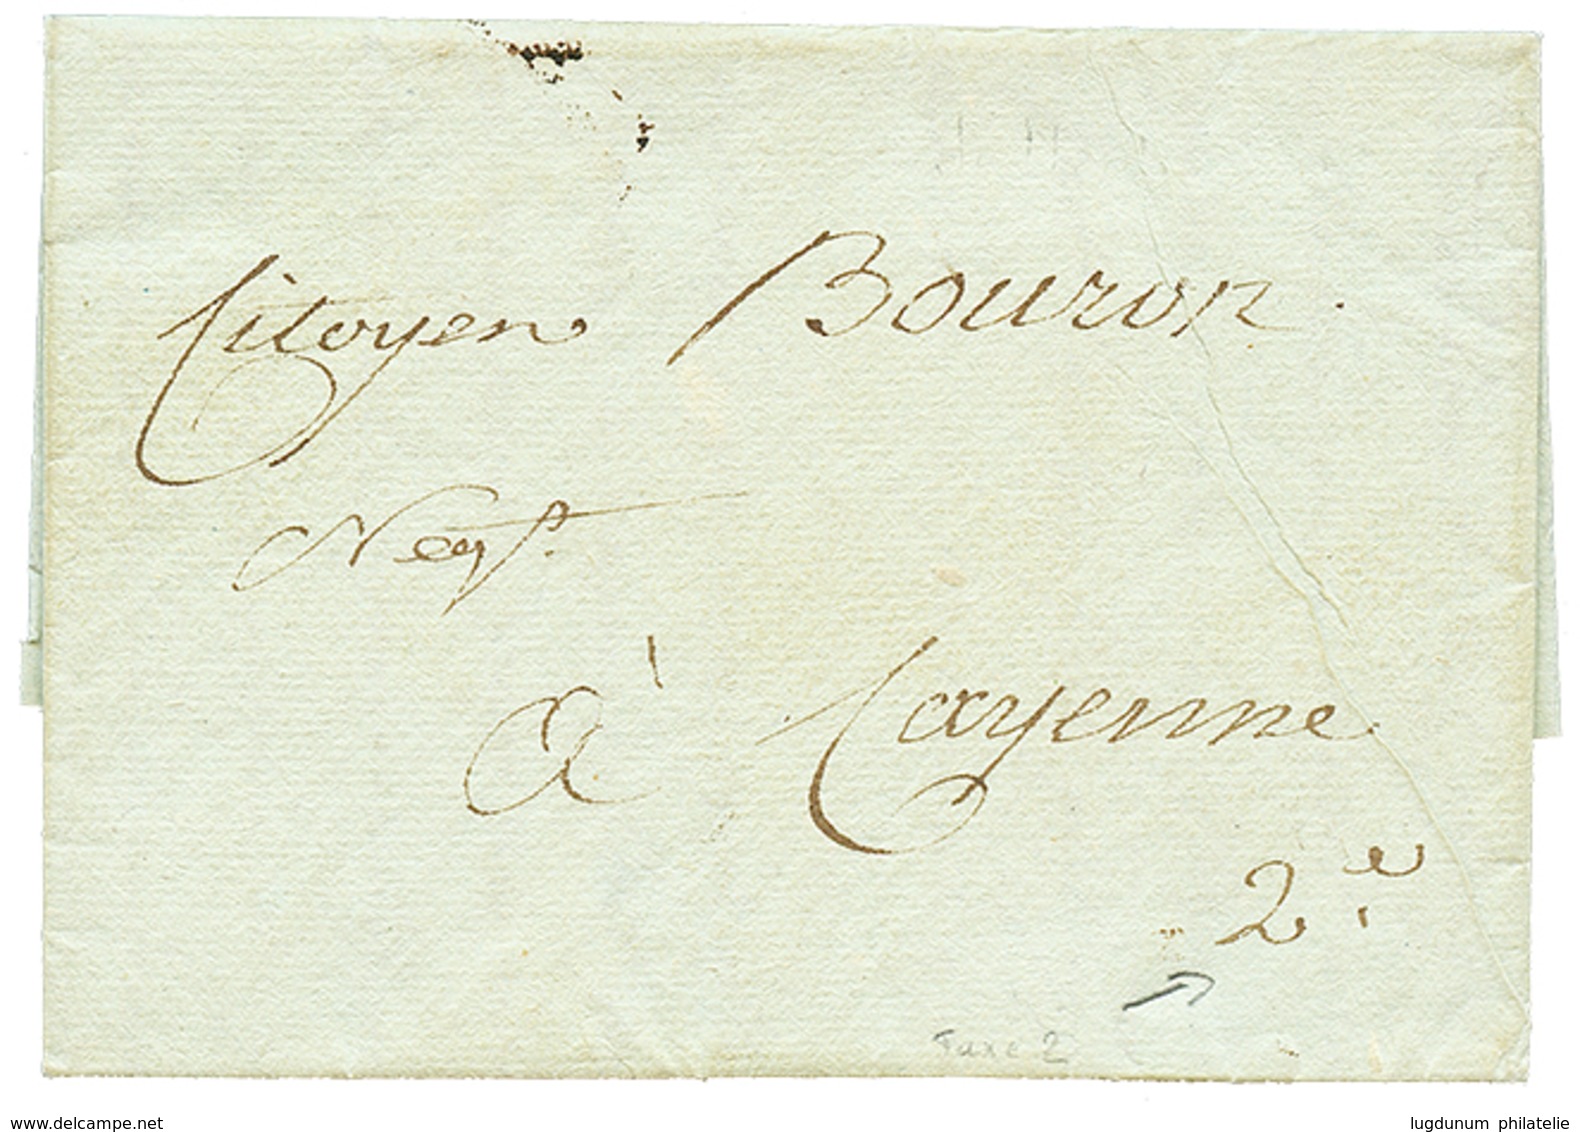 Citoyen Bouron.
Negt.
à Cayenne.
2e
Taxe 2
www.delcampe.net
lugdunum philatelie